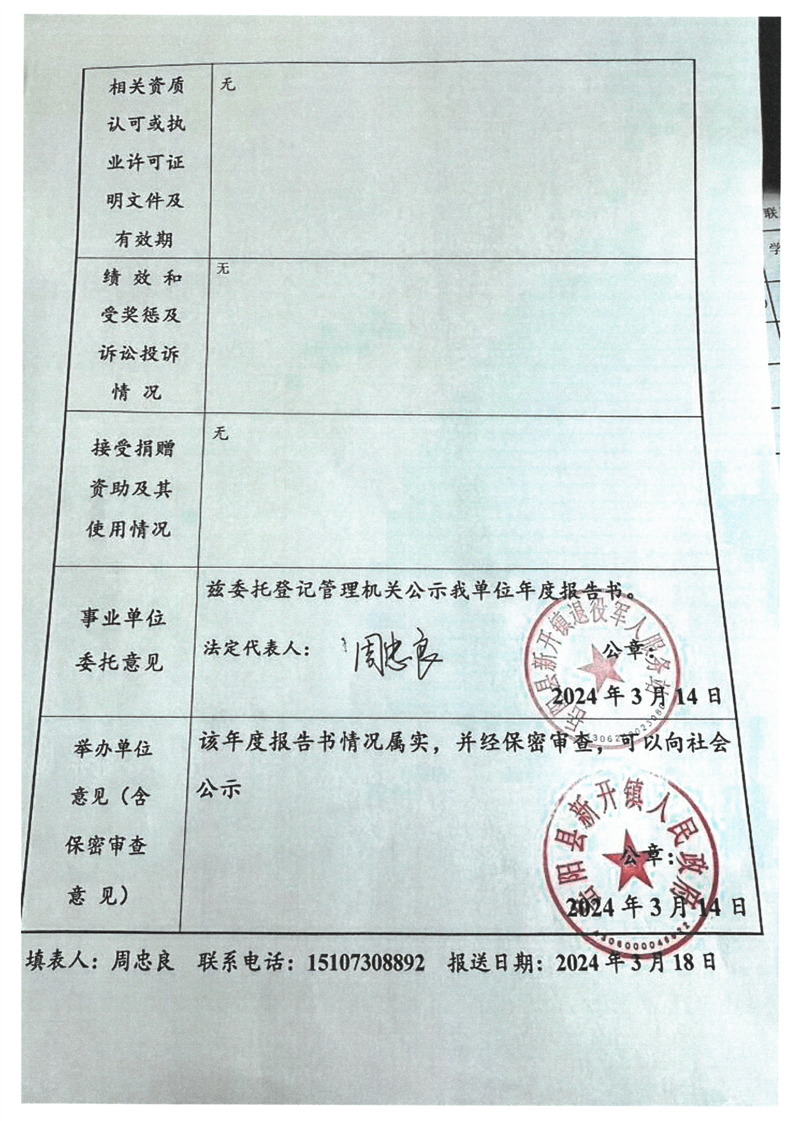 相关资质
认可或执
业许可证
明文件及
有效期
无
绩 效 和
受奖惩及
诉讼投诉
情 况
无
接受捐赠
资助及其
使用情况
无
事业单位
委托意见
兹委托登记管理机关公示我单位年度报告书。
法定代表人：
周忠良
公章：
2024 年 3 月 14 日
岳阳县新开镇退役军人服务站
举办单位
意见（含
保密审查
意 见）
该年度报告书情况属实，并经保密审查，可以向社会
公示
公章：
2024 年 3 月 14 日
岳阳县新开镇人民政府
填表人：周忠良 联系电话：15107308892 报送日期：2024 年 3 月 18 日
联
学